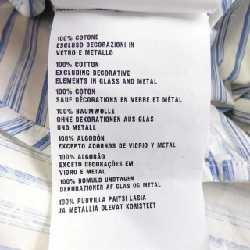 100% COTONE
ESCLUSO DECORAZIONI IN
VETRO E METALLO
100% COTTON
EXCLUDING DECORATIVE
ELEMENTS IN GLASS AND METAL
100% COTON
SAUF DÉCORATIONS EN VERRE ET MÉTAL
100% BAUMWOLLE
OHNE DEKORATIONEN AUS GLAS
UND METALL
100% ALGODÓN
EXCEPTO ADORNOS DE VIDRIO Y METAL
100% ALGODÃO
EXCETO DECORAÇÕES EM
VIDRO E METAL
100% BOMULD UNDTAGEN
DEKORATIONER AF GLAS OG METAL
100% PUUVILLA PAITSI LASIA
JA METALLIA OLEVAT KORISTEET